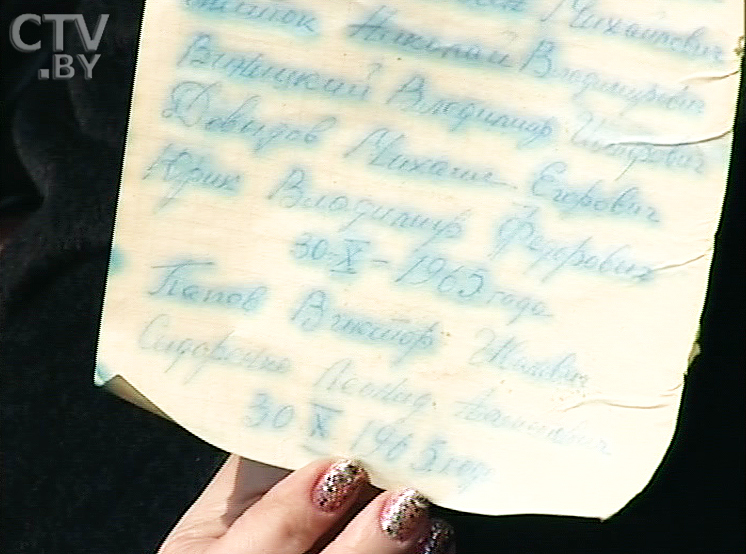 CTV
.BY
Михайлович
Николай Владимирович
Виницкий Владимир
Давыдов Михаил Егорович
Юрик Владимир Федорович
30-X-1965 года
Попов Виктор
Сидоренко Леонид
30 X 1965 год